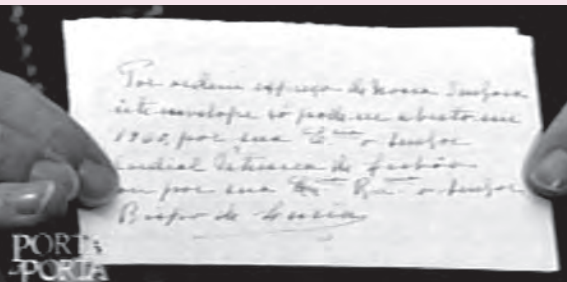 Por ordem expressa de Nossa Senhora
este envelope só pode ser aberto em
1960, por sua Em.ª o Senhor
Cardial Patriarca de Lisboa
ou por sua Ex.ª Rv.ª o Senhor
Bispo de Leiria
PORTA
A PORTA